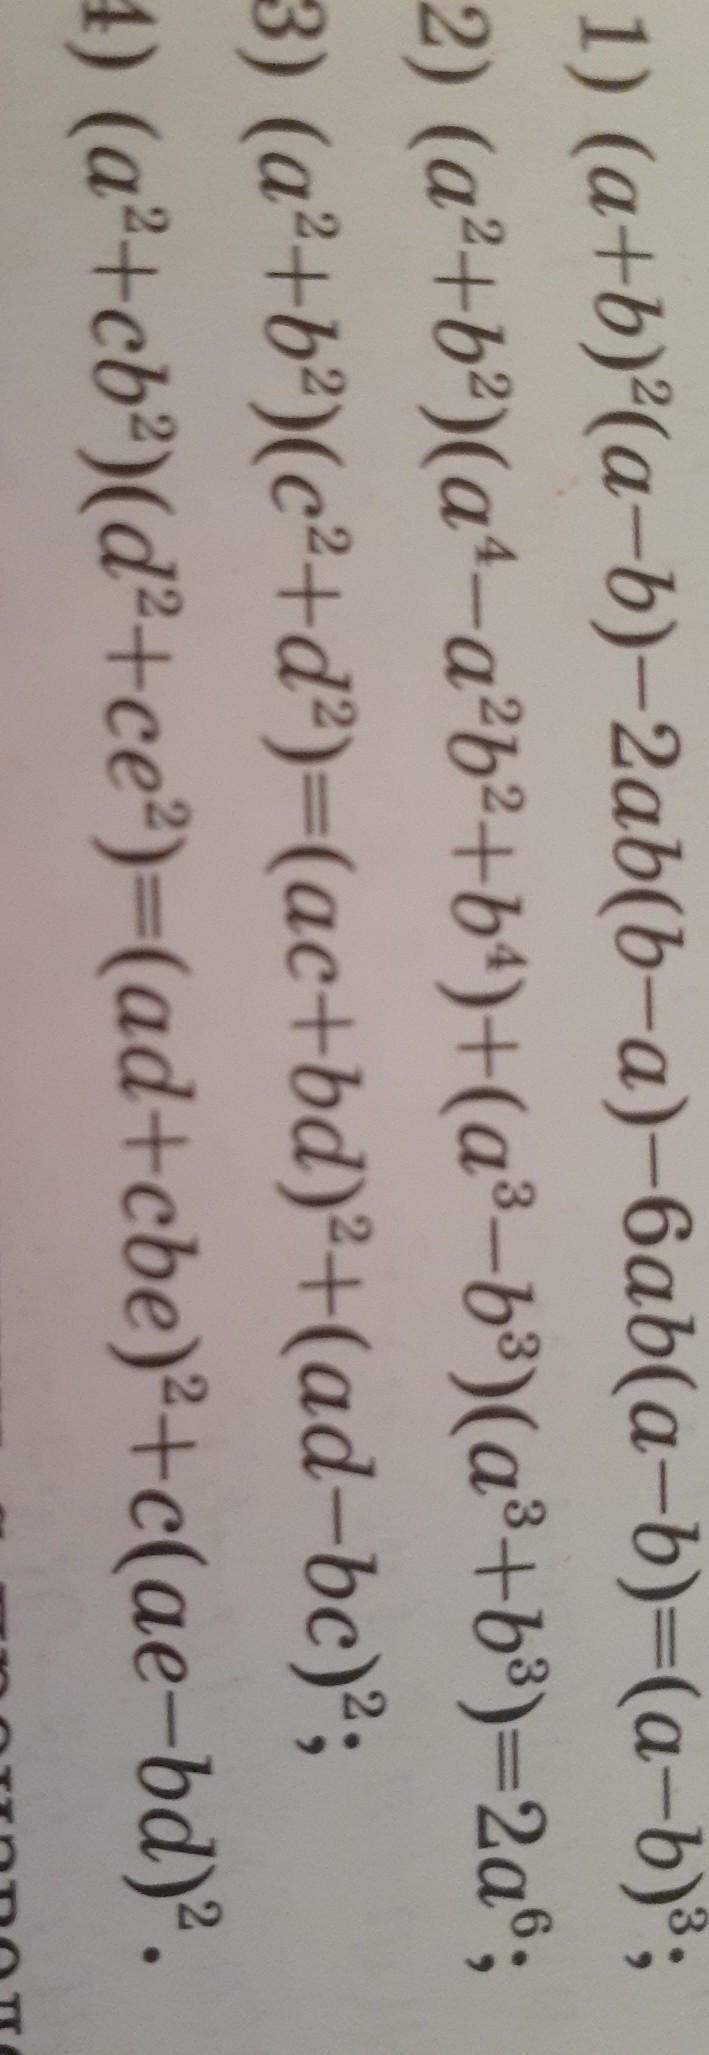 1) (a+b)²(a−b)−2ab(b−a)−6ab(a−b)=(a−b)³;
2) (a²+b²)(a⁴−a²b²+b⁴)+(a³−b³)(a³+b³)=2a⁶;
3) (a²+b²)(c²+d²)=(ac+bd)²+(ad−bc)²;
4) (a²+cb²)(d²+ce²)=(ad+cbe)²+c(ae−bd)².